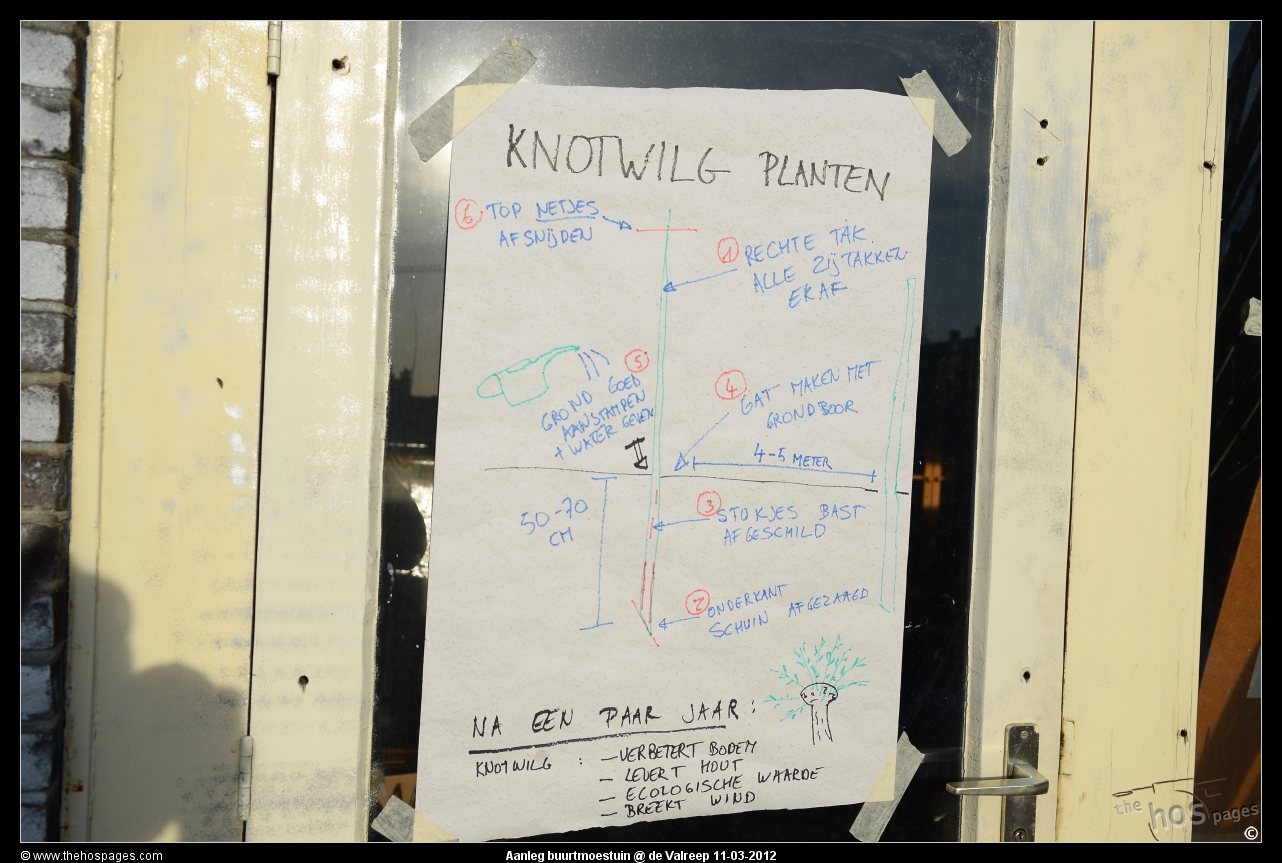 KNOTWILG PLANTEN
6 TOP NETJES
AFSNIJDEN
1 RECHTE TAK.
ALLE ZIJTAKKEN
ERAF
5
GROND GOED
AANSTAMPEN
+ WATER GEVEN
4 GAT MAKEN MET
GRONDBOOR
4-5 METER
50-70
CM
3 STUKJES BAST
AFGESCHILD
2 ONDERKANT
SCHUIN AFGEZAAGD
NA EEN PAAR JAAR:
KNOTWILG : - VERBETERT BODEM
- LEVERT HOUT
- ECOLOGISCHE WAARDE
- BREEKT WIND
the hos pages
©
© www.thehospages.com
Aanleg buurtmoestuin @ de Valreep 11-03-2012